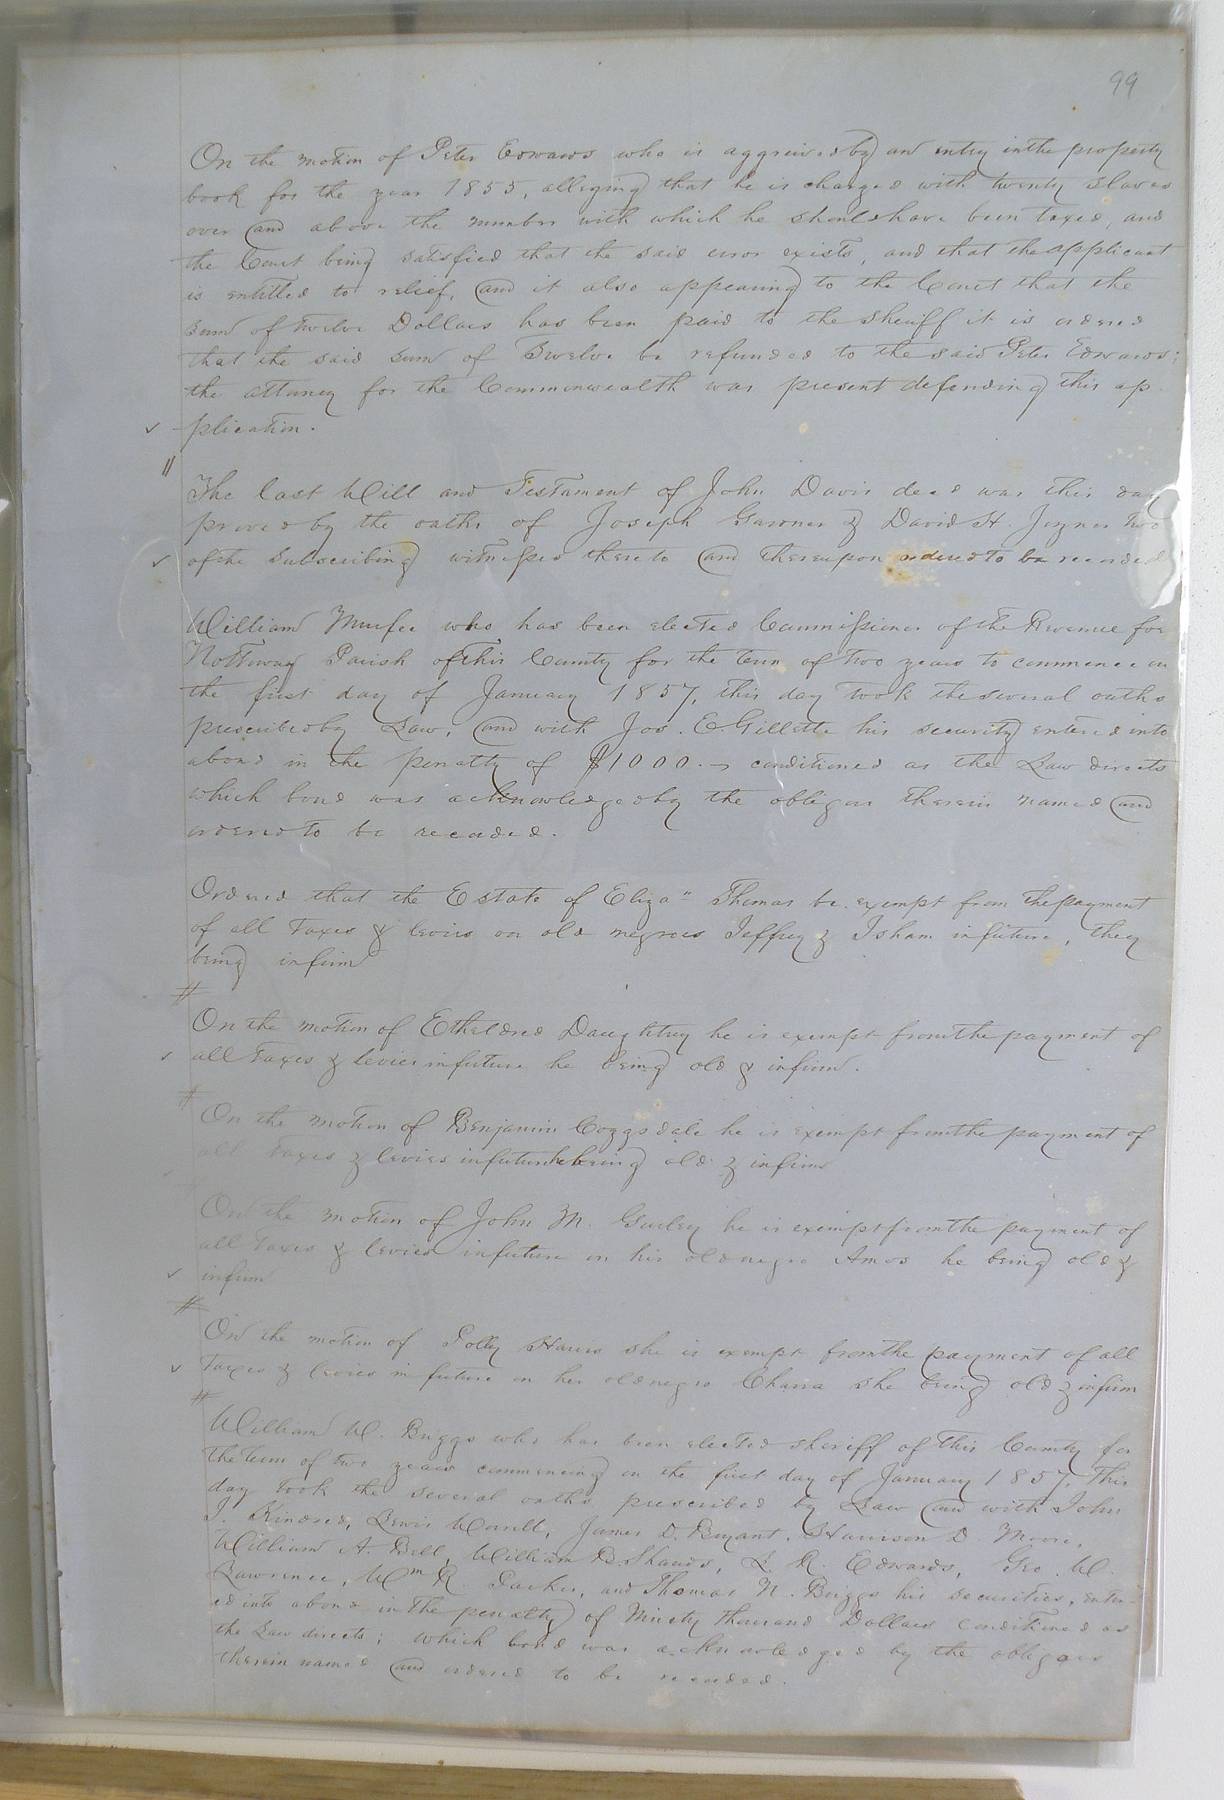 99
On the motion of Peter Edwards who is aggrieved by an entry in the property
book for the year 1855, alleging that he is charged with twenty slaves
over and above the number with which he should have been taxed, and
the Court being satisfied that the said error exists, and that the applicant
is entitled to relief, and it also appearing to the Court that the
sum of twelve Dollars has been paid to the sheriff it is ordered
that the said sum of Twelve be refunded to the said Peter Edwards;
the attorney for the Commonwealth was present defending this ap
plication.
The last Will and Testament of John Davis decd was this day
proved by the oaths of Joseph Garner & David H. Joyner two
of the subscribing witnesses thereto and thereupon ordered to be recorded
William Murfee who has been elected Commissioner of the Revenue for
Nottoway Parish of this County for the term of two years to commence on
the first day of January 1857, this day took the several oaths
prescribed by Law, and with Jos. E Gillette his security entered into
a bond in the penalty of $1000. conditioned as the Law directs
which bond was acknowledged by the obligors therein named and
ordered to be recorded.
Ordered that the Estate of Eliza" Thomas be exempt from the payment
of all taxes & levies on old negroes Jeffrey & Isham in future, they
being infirm
On the motion of Etheldred Daughtrey he is exempt from the payment of
all taxes & levies in future he being old & infirm.
On the motion of Benjamin Coggsdale he is exempt from the payment of
all taxes & levies in future he being old & infirm
On the motion of John M. Gurley he is exempt from the payment of
all taxes & levies in future on his old negro Amos he being old &
infirm
On the motion of Polly Harris she is exempt from the payment of all
taxes & levies in future on her old negro Chana she being old & infirm
William W. Briggs who has been elected sheriff of this County for
the term of two years commencing on the first day of January 1857, this
day took the several oaths prescribed by Law and with John
J. Kindred, Lewis Worrell, James D. Bryant, Harrison D Moore,
William A. Bell, William B. Shands, L. R. Edwards, Geo. W.
Lawrence, Wm R. Parker, and Thomas N. Briggs his securities, enter-
ed into a bond in the penalty of Ninety thousand Dollars conditioned as
the Law directs; which bond was acknowledged by the obligors
therein named and ordered to be recorded.